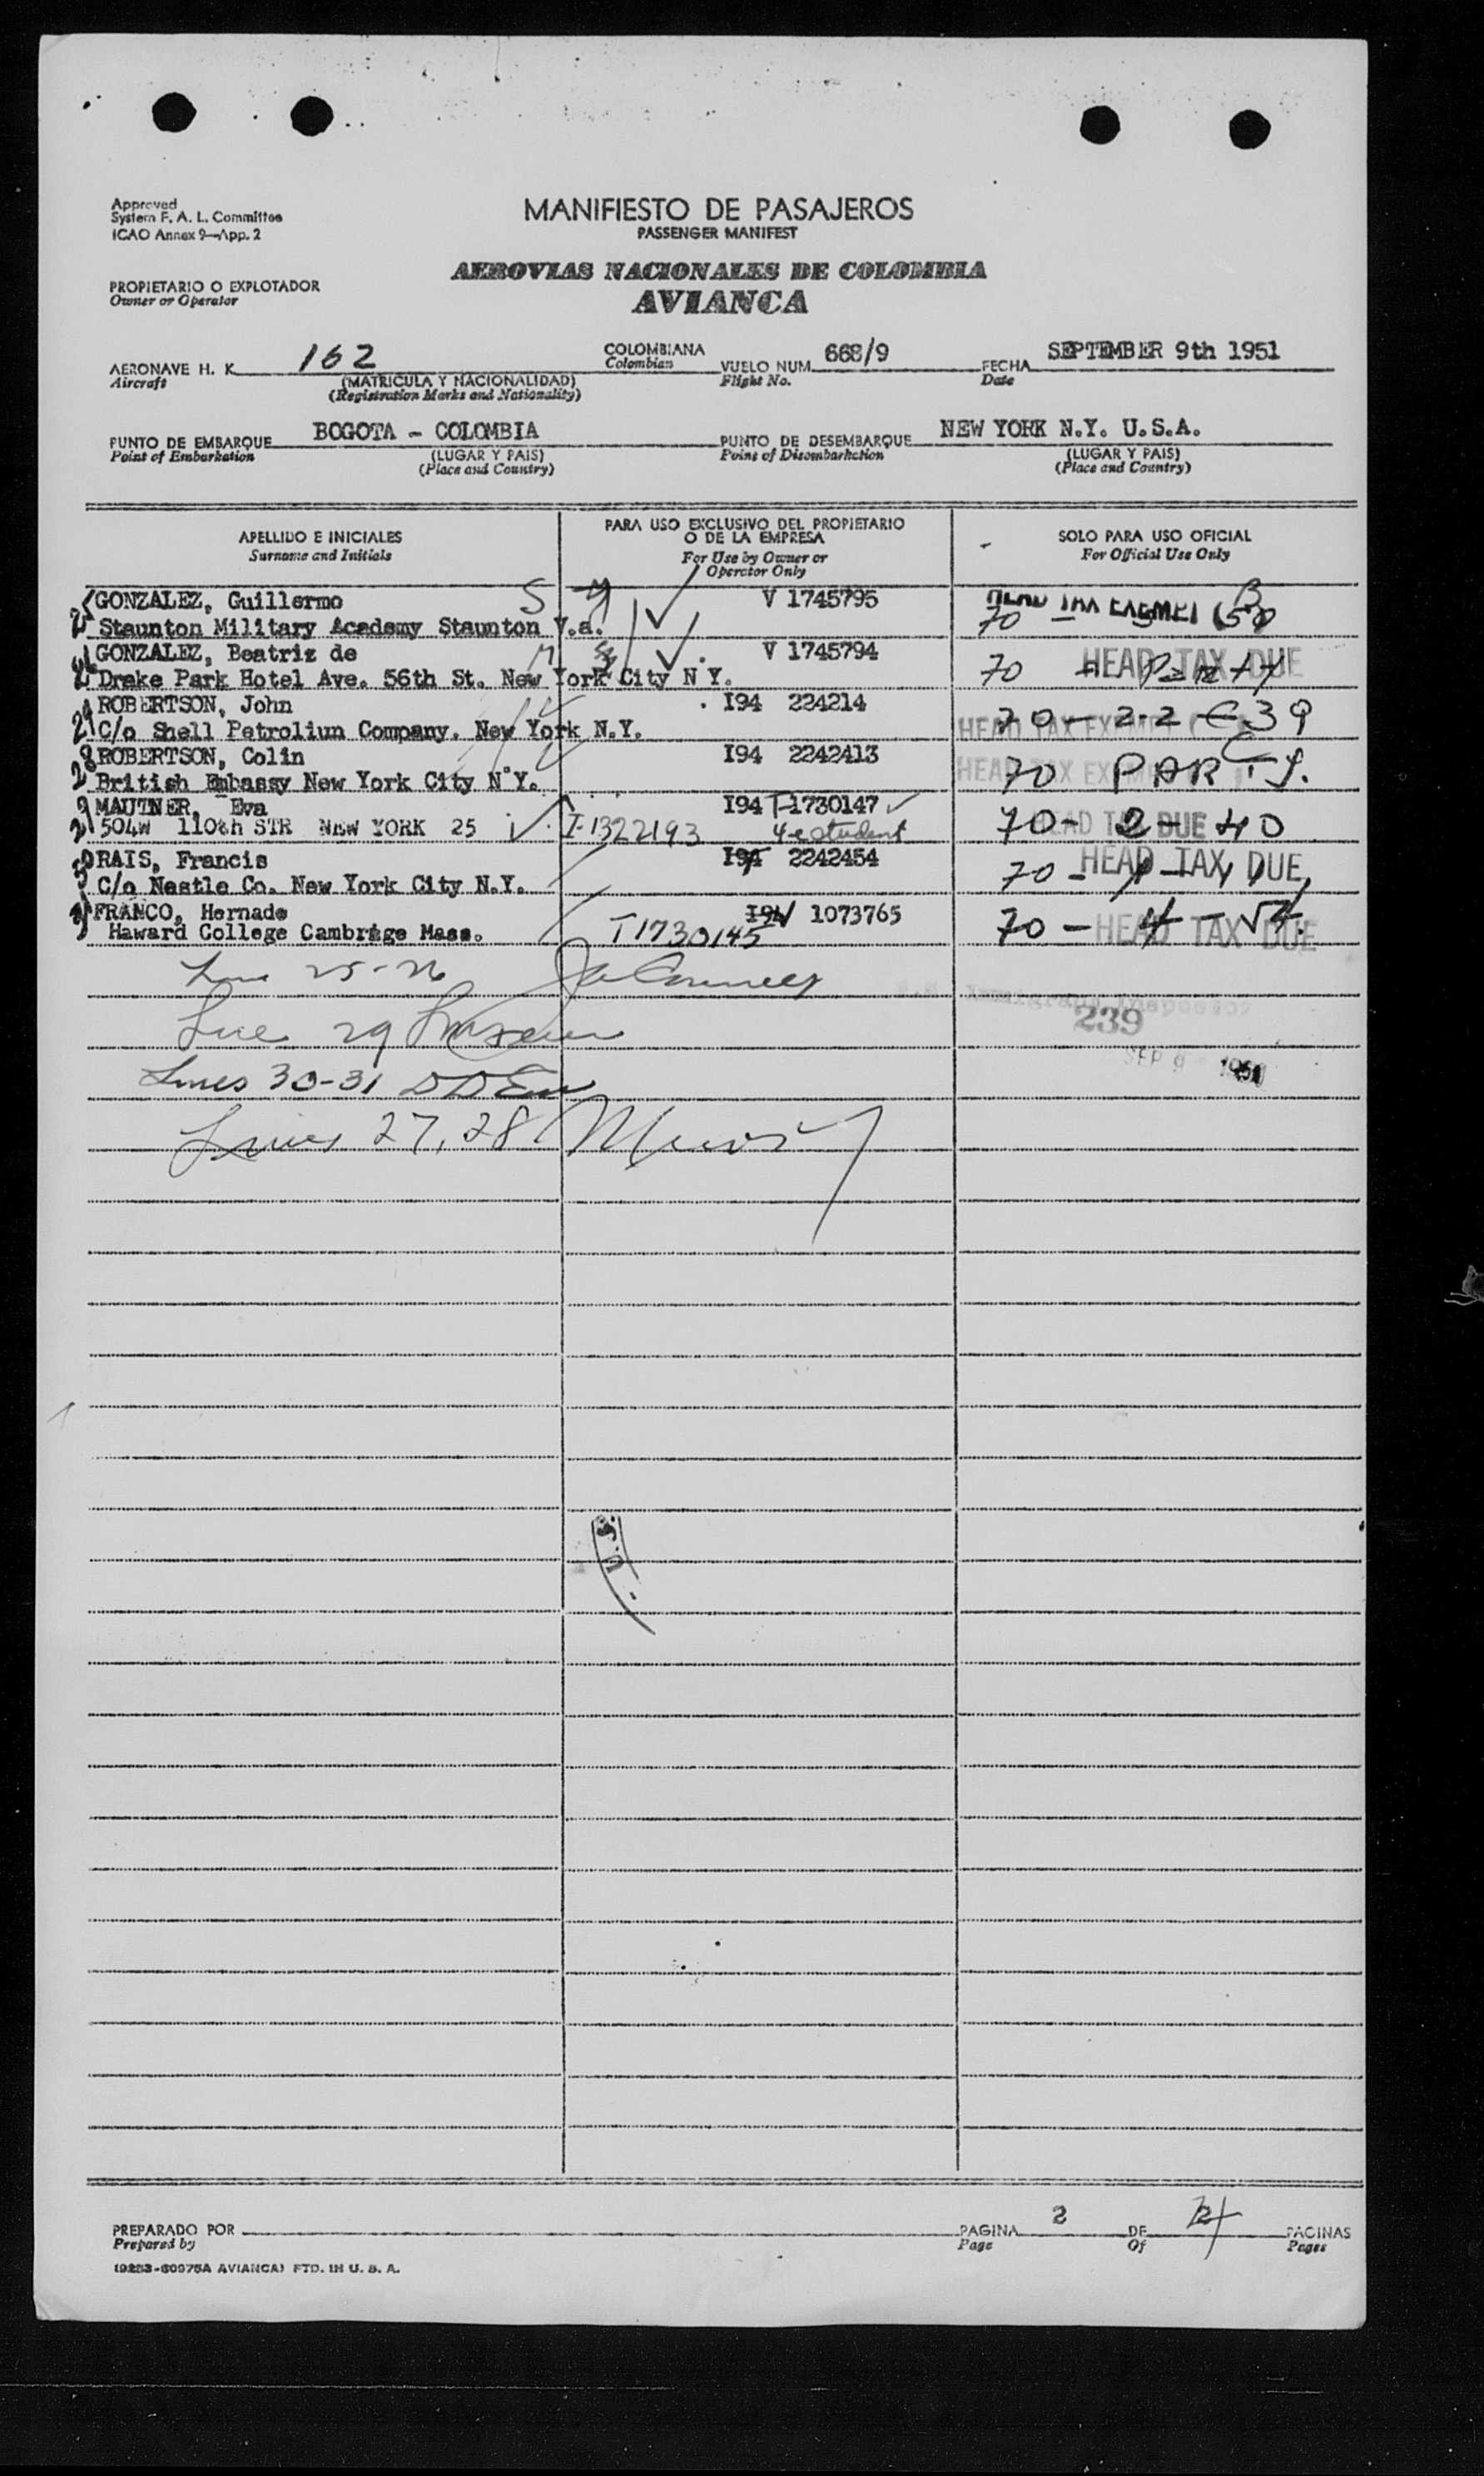 Approved
System F. A. L. Committee
ICAO Annex 9—App. 2
MANIFIESTO DE PASAJEROS
PASSENGER MANIFEST
AEROVIAS NACIONALES DE COLOMBIA
AVIANCA
PROPIETARIO O EXPLOTADOR
Owner or Operator
AERONAVE H. K. 162 COLOMBIANA VUELO NUM. 668/9 FECHA SEPTEMBER 9th 1951
Aircraft (MATRICULA Y NACIONALIDAD) Colombian Flight No. Date
(Registration Marks and Nationality)
PUNTO DE EMBARQUE BOGOTA - COLOMBIA PUNTO DE DESEMBARQUE NEW YORK N.Y. U.S.A.
Point of Embarkation (LUGAR Y PAIS) Point of Disembarkation (LUGAR Y PAIS)
(Place and Country) (Place and Country)
APELLIDO E INICIALES
Surname and Initials
PARA USO EXCLUSIVO DEL PROPIETARIO
O DE LA EMPRESA
For Use by Owner or
Operator Only
SOLO PARA USO OFICIAL
For Official Use Only
GONZALEZ, Guillermo S V 1745795 HEAD TAX EXEMPT
Staunton Military Academy Staunton V.a. 70 -
GONZALEZ, Beatriz de M V 1745794 HEAD TAX DUE
Drake Park Hotel Ave. 56th St. New York City N Y. 70 - Party
ROBERTSON, John I94 224214
C/o Shell Petroliun Company. New York N.Y. 70 - 2-2 - 39 HEAD TAX EXEMPT
28 ROBERTSON, Colin I94 2242413
British Embassy New York City N Y. 70 PARTY. HEAD TAX EXEMPT
29 MAUTNER, Eva I94 T-1730147
504W 110th STR NEW YORK 25 I-1322193 4-e student 70 - 2 - 40 HEAD TAX DUE
30 RAIS, Francis I94 2242454 HEAD TAX DUE
C/o Nestle Co. New York City N.Y. 70 -
31 FRANCO, Hernade I94 1073765
Haward College Cambrige Mass. T1730145 70 - 4 - HEAD TAX DUE
Line 25-26
Immigrant Inspector
239
Line 29
SEP 9 1951
Lines 30-31
Lines 27, 28
U.S.
PREPARADO POR PAGINA 2 DE PAGINAS
Prepared by Page Of Pages
(9283-60975A AVIANCA) PTD. IN U. S. A.